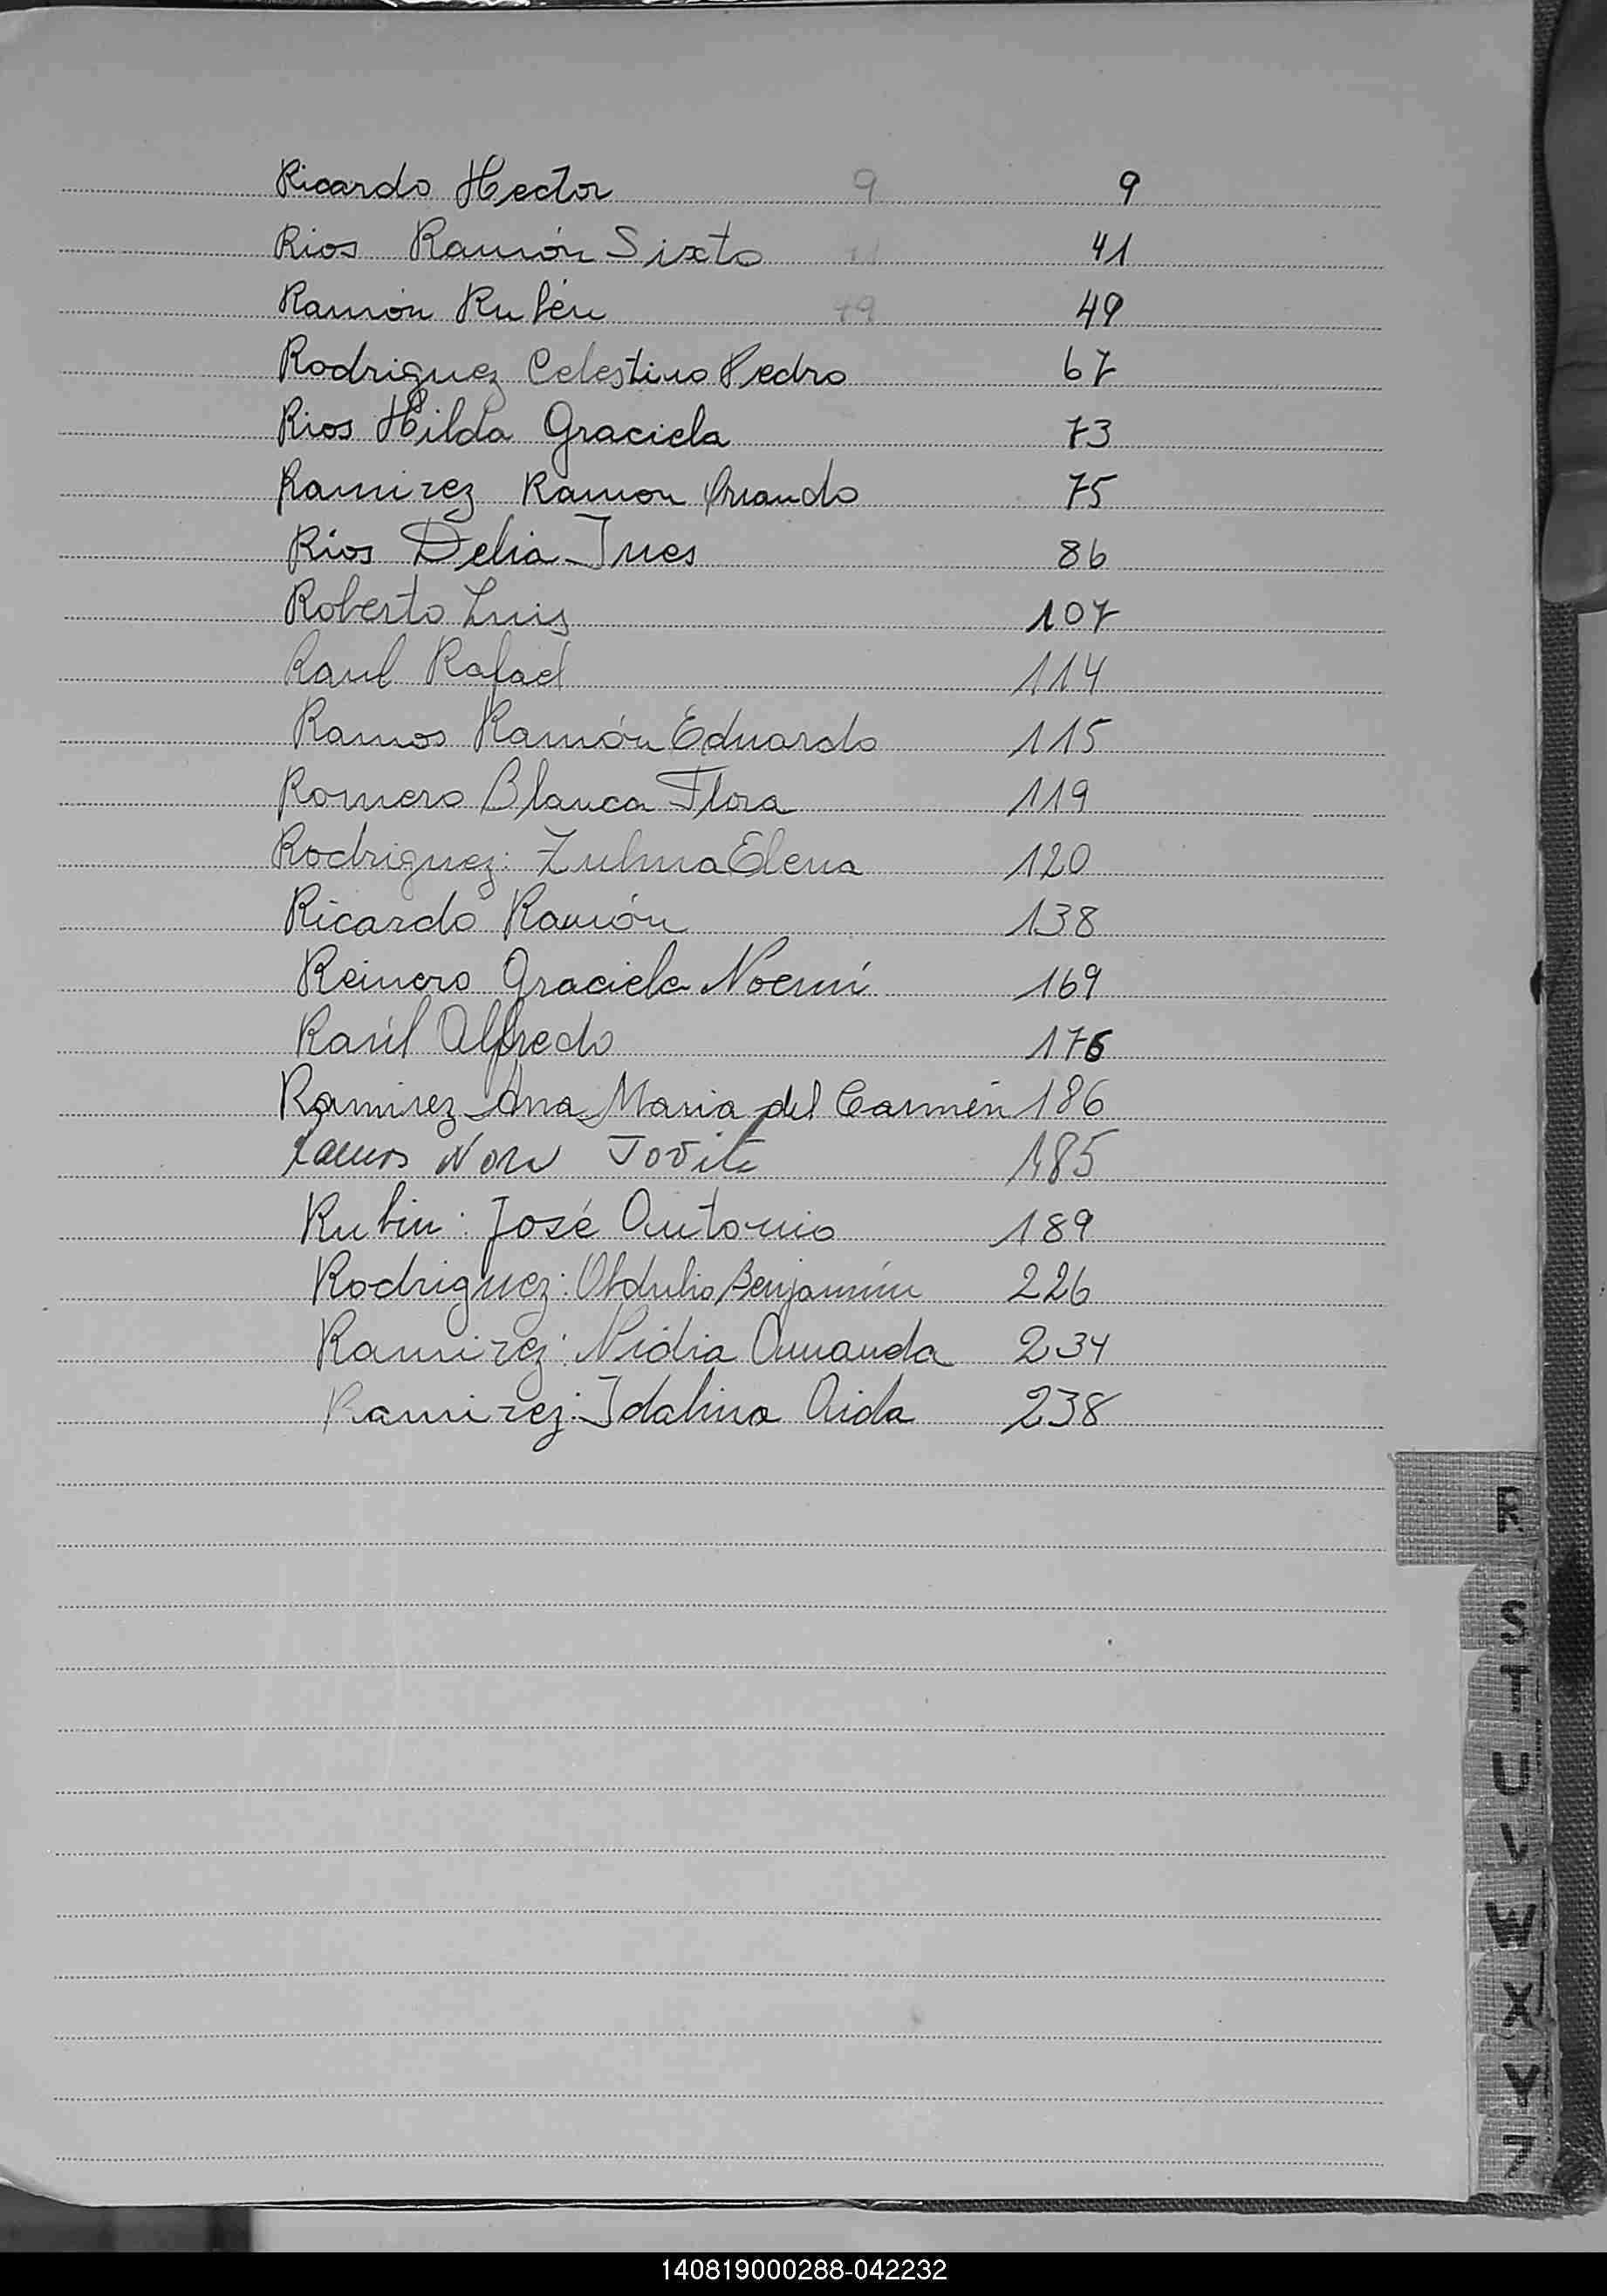 Ricardo Hector 9 9
Rios Ramón Sixto 41 41
Ramón Rubén 49 49
Rodriguez Celestino Pedro 67
Rios Hilda Graciela 73
Ramirez Ramon 75
Rios Delia Ines 86
Roberto Luis 107
Raul Rafael 114
Ramos Ramón Eduardo 115
Romero Blanca Flora 119
Rodriguez: Zulma Elena 120
Ricardo Ramón 138
Reinero Graciela Noemí 169
Raúl Alfredo 176
Ramirez Ana Maria del Carmen 186
Ramos Nora Jovita 185
Rubin: José Antonio 189
Rodriguez: Obdulio Benjamín 226
Ramirez: Nidia Amanda 234
Ramirez: Idalina Aida 238
R
S
T
U
V
W
X
Y
Z
140819000288-042232